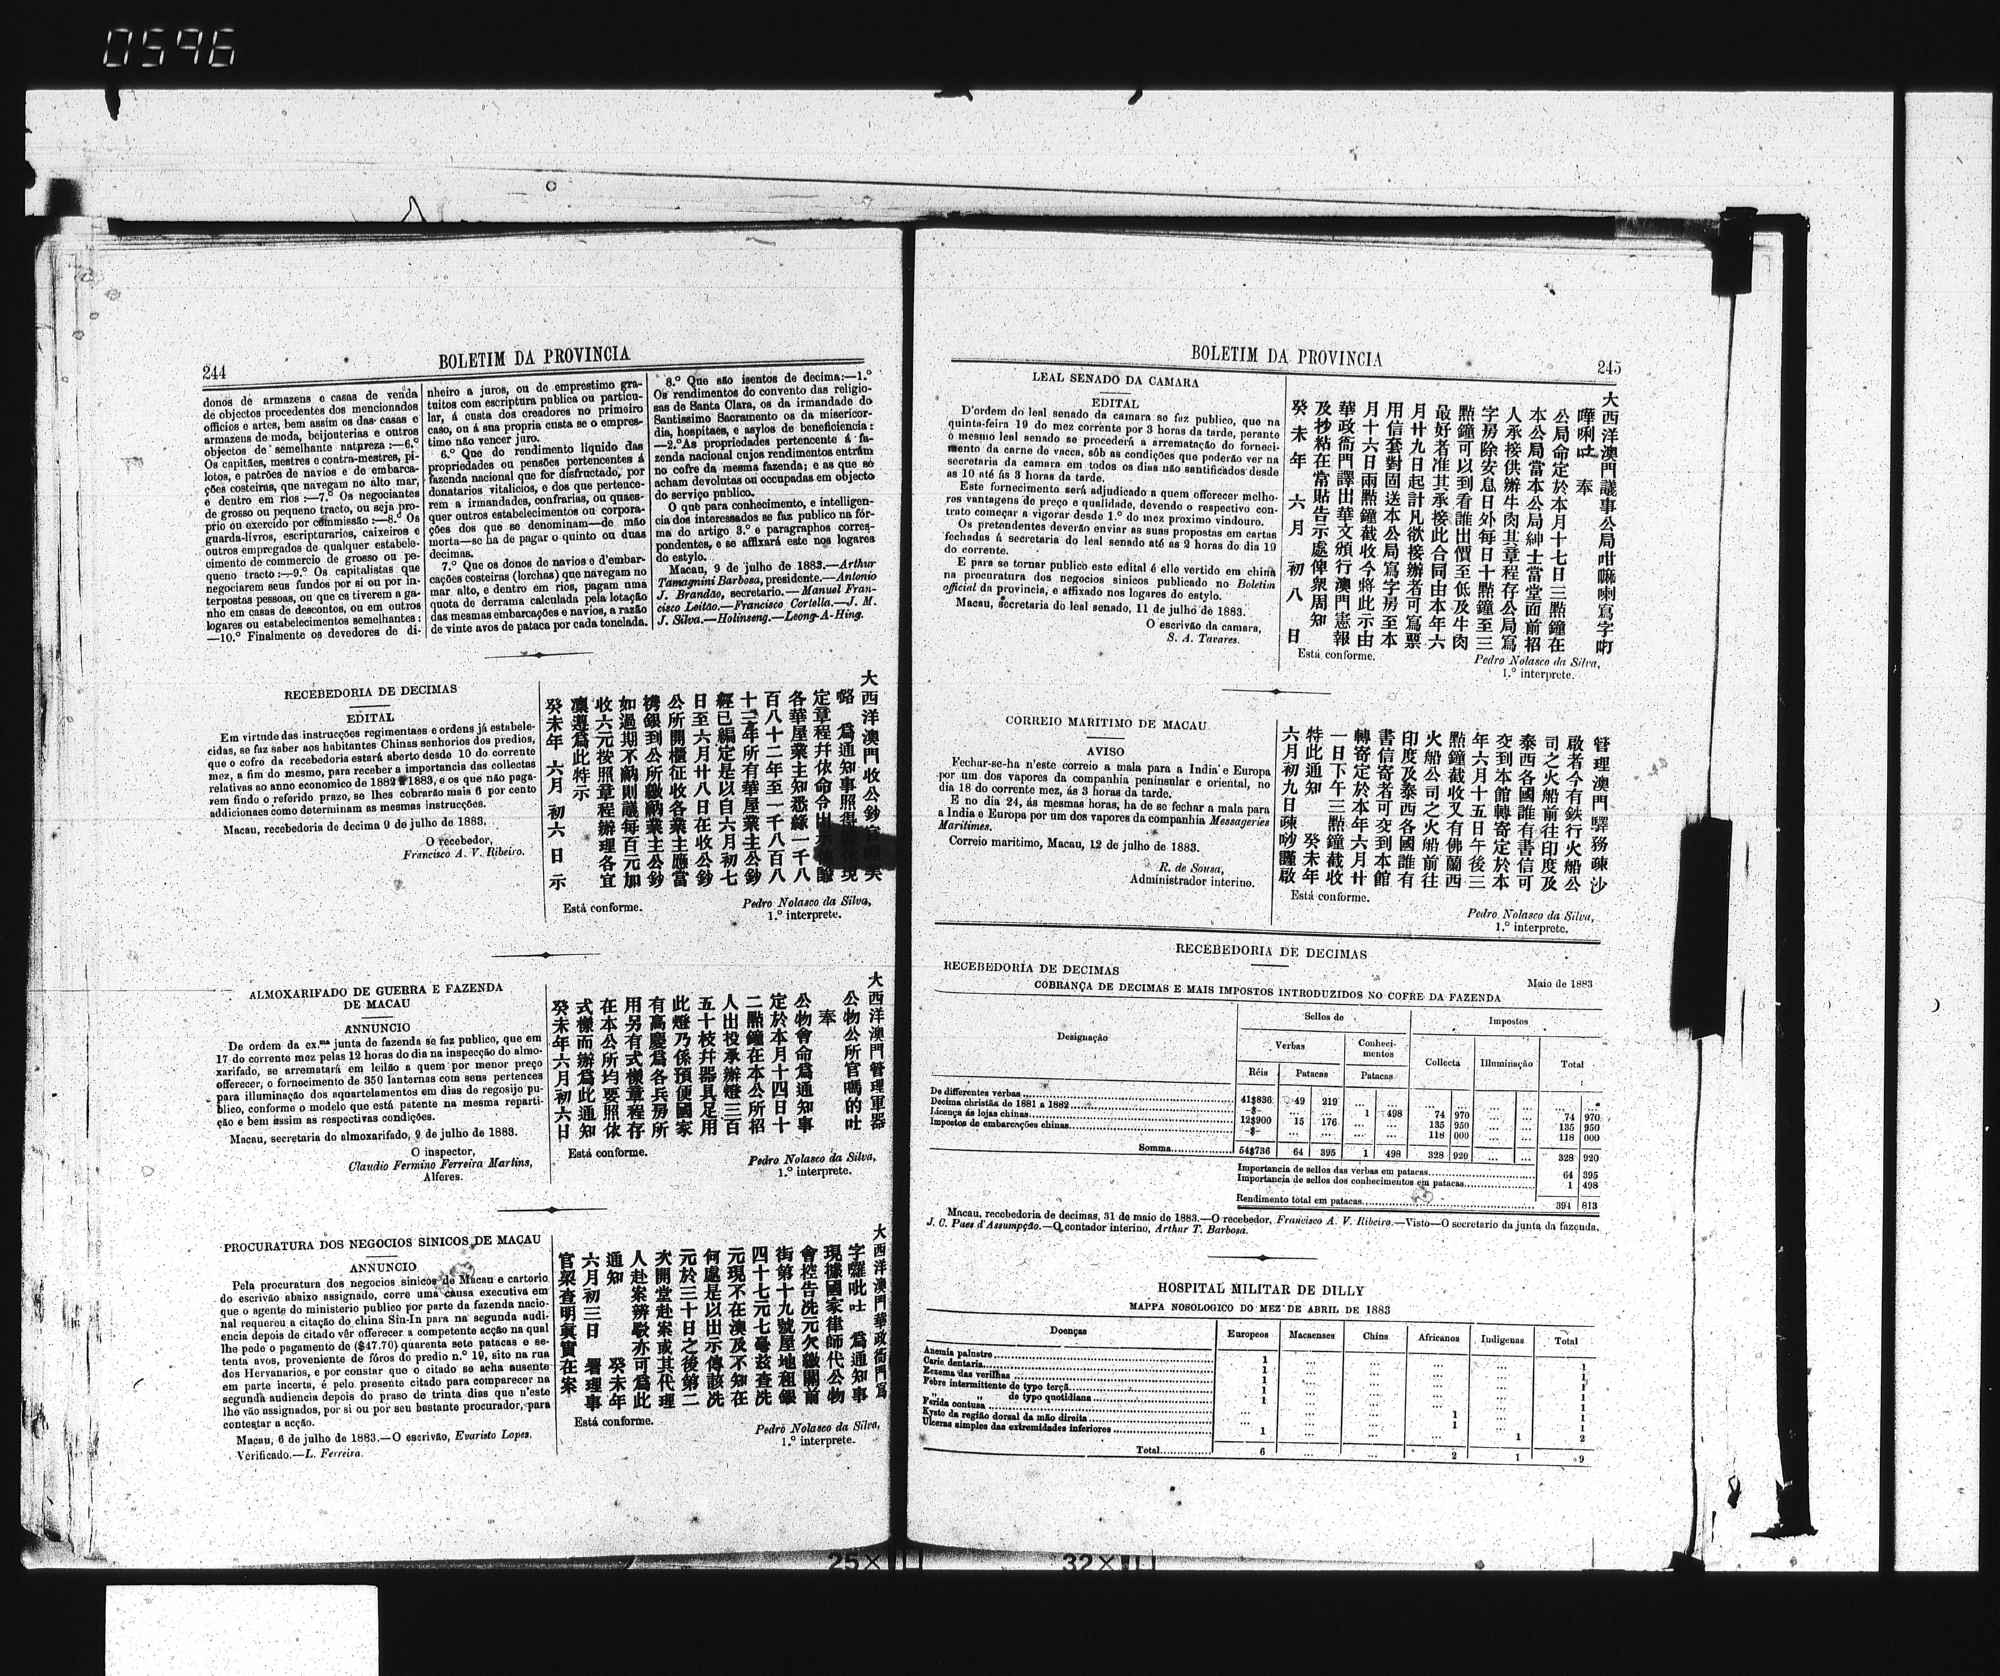 0596
244
BOLETIM DA PROVINCIA
donos de armazens e casas de venda
de objectos procedentes dos mencionados
officios e artes, bem assim os das casas e
armazens de moda, beijouterias e outros
objectos de semelhante natureza :—6.º
Os capitães, mestres e contra-mestres, pi-
lotos, e patrões de navios e de embarca-
ções costeiras, que navegam no alto mar,
e dentro em rios :—7.º Os negociantes
de grosso ou pequeno tracto, ou seja pro-
prio ou exercido por commissão :—8.º Os
guarda-livros, escripturarios, caixeiros e
outros empregados de qualquer estabele-
cimento de commercio de grosso ou pe-
queno tracto :—9.º Os capitalistas que
negociarem seus fundos por si ou por in-
terpostas pessoas, ou que os tiverem a ga-
nho em casas de descontos, ou em outros
logares ou estabelecimentos semelhantes :
—10.º Finalmente os devedores de di-
nheiro a juros, ou de emprestimo gra-
tuitos com escriptura publica ou particu-
lar, á custa dos creadores no primeiro
caso, ou á sua propria custa se o empres-
timo não vencer juro.
6.º Que do rendimento liquido das
propriedades ou pensões pertencentes á
fazenda nacional que for disfructado, por
donatarios vitalicios, e dos que pertence-
rem a irmandades, confrarias, ou quaes-
quer outros estabelecimentos ou corpora-
ções dos que se denominam—de mão
morta—se ha de pagar o quinto ou duas
decimas.
7.º Que os donos de navios e d'embar-
cações costeiras (lorchas) que navegam no
mar alto, e dentro em rios, pagam uma
quota de derrama calculada pela lotação
das mesmas embarcações e navios, a razão
de vinte avos de pataca por cada tonelada.
8.º Que são isentos de decima:—1.º
Os rendimentos do convento das religio-
sas de Santa Clara, os da irmandade do
Santissimo Sacramento os da misericor-
dia, hospitaes, e asylos de beneficiencia :
—2.º As propriedades pertencente á fa-
zenda nacional cujos rendimentos entrám
no cofre da mesma fazenda; e as que só
acham devolutas ou occupadas em objecto
do serviço publico.
O que para conhecimento, e intelligen-
cia dos interessados se faz publico na fór-
ma do artigo 3.º e paragraphos corres-
pondentes, e se affixará este nos logares
do estylo.
Macau, 9 de julho de 1883.—Arthur
Tamagnini Barbosa, presidente.—Antonio
J. Brandão, secretario.—Manuel Fran-
cisco Leitão.—Francisco Cortella.—J. M.
J. Silva.—Holinseng.—Leong-A-Hing.
RECEBEDORIA DE DECIMAS
EDITAL
Em virtude das instrucções regimentaes e ordens já estabele-
cidas, se faz saber aos habitantes Chinas senhorios dos predios,
que o cofre da recebedoria estará aberto desde 10 do corrente
mez, a fim do mesmo, para receber a importancia das collectas
relativas ao anno economico de 1882 a 1883, e os que não paga-
rem findo o referido prazo, se lhes cobrarão mais 6 por cento
addicionaes como determinam as mesmas instrucções.
Macau, recebedoria de decima 9 de julho de 1883.
O recebedor,
Francisco A. V. Ribeiro.
大西洋澳門收公鈔官
爲通知事照得
定章程幷依命令出
各華屋業主知悉緣一千八
百八十二年至一千八百八
十三年所有華屋業主公鈔
經已編定是以自六月初七
日至六月廿八日在收公鈔
公所開櫃征收各業主應當
攜銀到公所繳納業主公鈔
如過期不納則議每百元加
收六元按照章程辦理各宜
凜遵爲此特示
癸未年六月初六日示
Está conforme.
Pedro Nolasco da Silva,
1.º interprete.
ALMOXARIFADO DE GUERRA E FAZENDA
DE MACAU
ANNUNCIO
De ordem da ex.ma junta de fazenda se faz publico, que em
17 do corrente mez pelas 12 horas do dia na inspecção do almo-
xarifado, se arrematará em leilão a quem por menor preço
offerecer, o fornecimento de 350 lanternas com seus pertences
para illuminação dos aquartelamentos em dias de regosijo pu-
blico, conforme o modelo que está patente na mesma reparti-
ção e bem assim as respectivas condições.
Macau, secretaria do almoxarifado, 9 de julho de 1883.
O inspector,
Claudio Fermino Ferreira Martins,
Alferes.
大西洋澳門管理軍器
公物公所官嗎的吐
奉
公物會命爲通知事
定於本月十四日十
二點鐘在本公所招
人出投承辦燈三百
五十枝幷器具足用
此燈乃係預便國家
有高慶爲各兵房所
用另有式樣章程存
在本公所均要照依
式樣而辦爲此通知
癸未年六月初六日
Está conforme.
Pedro Nolasco da Silva,
1.º interprete.
PROCURATURA DOS NEGOCIOS SINICOS DE MACAU
ANNUNCIO
Pela procuratura dos negocios sinicos de Macau e cartorio
do escrivão abaixo assignado, corre uma causa executiva em
que o agente do ministerio publico por parte da fazenda nacio-
nal requereu a citação do china Sin-In para na segunda audi-
encia depois de citado vêr offerecer a competente acção na qual
lhe pede o pagamento de ($47.70) quarenta sete patacas e se-
tenta avos, proveniente de fóros do predio n.º 19, sito na rua
dos Hervanarios, e por constar que o citado se acha ausente
em parte incerta, é pelo presente citado para comparecer na
segunda audiencia depois do praso de trinta dias que n'este
lhe vão assignados, por si ou por seu bastante procurador, para
contestar a acção.
Macau, 6 de julho de 1883.—O escrivão, Evaristo Lopes.
Verificado.—L. Ferreira.
大西洋澳門華政衙門寫
字囉吡吐 爲通知事
現據國家律師代公物
會控告冼元欠繳關前
街第十九號屋地租銀
四十七元七毫茲查冼
元現不在澳及不知在
何處是以出示傳該冼
元於三十日之後第二
次開堂赴案或其代理
人赴案辨駁亦可爲此
通知 癸未年
六月初三日 署理事
官梁查明眞實在案
Está conforme.
Pedro Nolasco da Silva,
1.º interprete.
BOLETIM DA PROVINCIA
245
LEAL SENADO DA CAMARA
EDITAL
D'ordem do leal senado da camara se faz publico, que na
quinta-feira 19 do mez corrente por 3 horas da tarde, perante
o mesmo leal senado se procederá a arrematação do forneci-
mento da carne de vacca, sôb as condições que poderão ver na
secretaria da camara em todos os dias não santificados desde
as 10 até ás 3 horas da tarde.
Este fornecimento será adjudicado a quem offerecer melho-
res vantagens de preço e qualidade, devendo o respectivo con-
trato começar a vigorar desde 1.º do mez proximo vindouro.
Os pretendentes deverão enviar as suas propostas em cartas
fechadas á secretaria do leal senado até as 2 horas do dia 19
do corrente.
E para se tornar publico este edital é elle vertido em china
na procuratura dos negocios sinicos publicado no Boletim
official da provincia, e affixado nos logares do estylo.
Macau, secretaria do leal senado, 11 de julho de 1883.
O escrivão da camara,
S. A. Tavares.
大西洋澳門議事公局咁嘛喇寫字
嘩唎吐 奉
公局命定於本月十七日三點鐘在
本公局當本公局紳士當堂面前招
人承接供辦牛肉其章程存公局寫
字房除安息日外每日十點鐘至三
點鐘可以到看誰出價至低及牛肉
最好者准其承接此合同由本年六
月廿九日起計凡欲接辦者可寫票
用信套對固送本公局寫字房至本
月十六日兩點鐘截收今將此示由
華政衙門譯出華文頒行澳門憲報
及抄粘在常貼告示處俾衆周知
癸未年六月初八日
Está conforme.
Pedro Nolasco da Silva,
1.º interprete.
CORREIO MARITIMO DE MACAU
AVISO
Fechar-se-ha n'este correio a mala para a India e Europa
por um dos vapores da companhia peninsular e oriental, no
dia 18 do corrente mez, ás 3 horas da tarde.
E no dia 24, ás mesmas horas, ha de se fechar a mala para
a India e Europa por um dos vapores da companhia Messageries
Maritimes.
Correio maritimo, Macau, 12 de julho de 1883.
R. de Sousa,
Administrador interino.
管理澳門驛務疎沙
啟者今有鉄行火船公
司之火船前往印度及
泰西各國誰有書信可
交到本館轉寄定於本
年六月十五日午後三
點鐘截收又有佛蘭西
火船公司之火船前往
印度及泰西各國誰有
書信寄者可交到本館
轉寄定於本年六月廿
一日下午三點鐘截收
特此通知 癸未年
六月初九日疎吵謹啟
Está conforme.
Pedro Nolasco da Silva,
1.º interprete.
RECEBEDORIA DE DECIMAS
RECEBEDORIA DE DECIMAS
Maio de 1883
COBRANÇA DE DECIMAS E MAIS IMPOSTOS INTRODUZIDOS NO COFRE DA FAZENDA
Designação
Sellos de
Impostos
Verbas
Conheci-
mentos
Collecta
Illuminação
Total
Réis
Patacas
Patacas
De differentes verbas 41$836 49 219 ... ... ... ... ... ... ... ...
Decima christãa de 1881 a 1882 -$- ... ... 1 498 74 970 ... ... 74 970
Licença ás lojas chinas 12$900 15 176 ... ... 135 950 ... ... 135 950
Impostos de embarcações chinas -$- ... ... ... ... 118 000 ... ... 118 000
Somma 54$736 64 395 1 498 328 920 ... ... 328 920
Importancia de sellos das verbas em patacas 64 395
Importancia de sellos dos conhecimentos em patacas 1 498
Rendimento total em patacas 394 813
Macau, recebedoria de decimas, 31 de maio de 1883.—O recebedor, Francisco A. V. Ribeiro.—Visto—O secretario da junta da fazenda,
J. C. Paes d'Assumpção.—O contador interino, Arthur T. Barbosa.
HOSPITAL MILITAR DE DILLY
MAPPA NOSOLOGICO DO MEZ DE ABRIL DE 1883
Doenças Europeos Macaenses China Africanos Indigenas Total
Anemia palustre 1 ... ... ... ... 1
Carie dentaria 1 ... ... ... ... 1
Eczema das verilhas 1 ... ... ... ... 1
Febre intermittente de typo terçã 1 ... ... ... ... 1
„ „ de typo quotidiana 1 ... ... ... ... 1
Ferida contusa ... ... ... 1 ... 1
Kysto da região dorsal da mão direita ... ... ... 1 ... 1
Ulceras simples das extremidades inferiores 1 ... ... ... 1 2
Total 6 ... ... 2 1 9
25×
32×